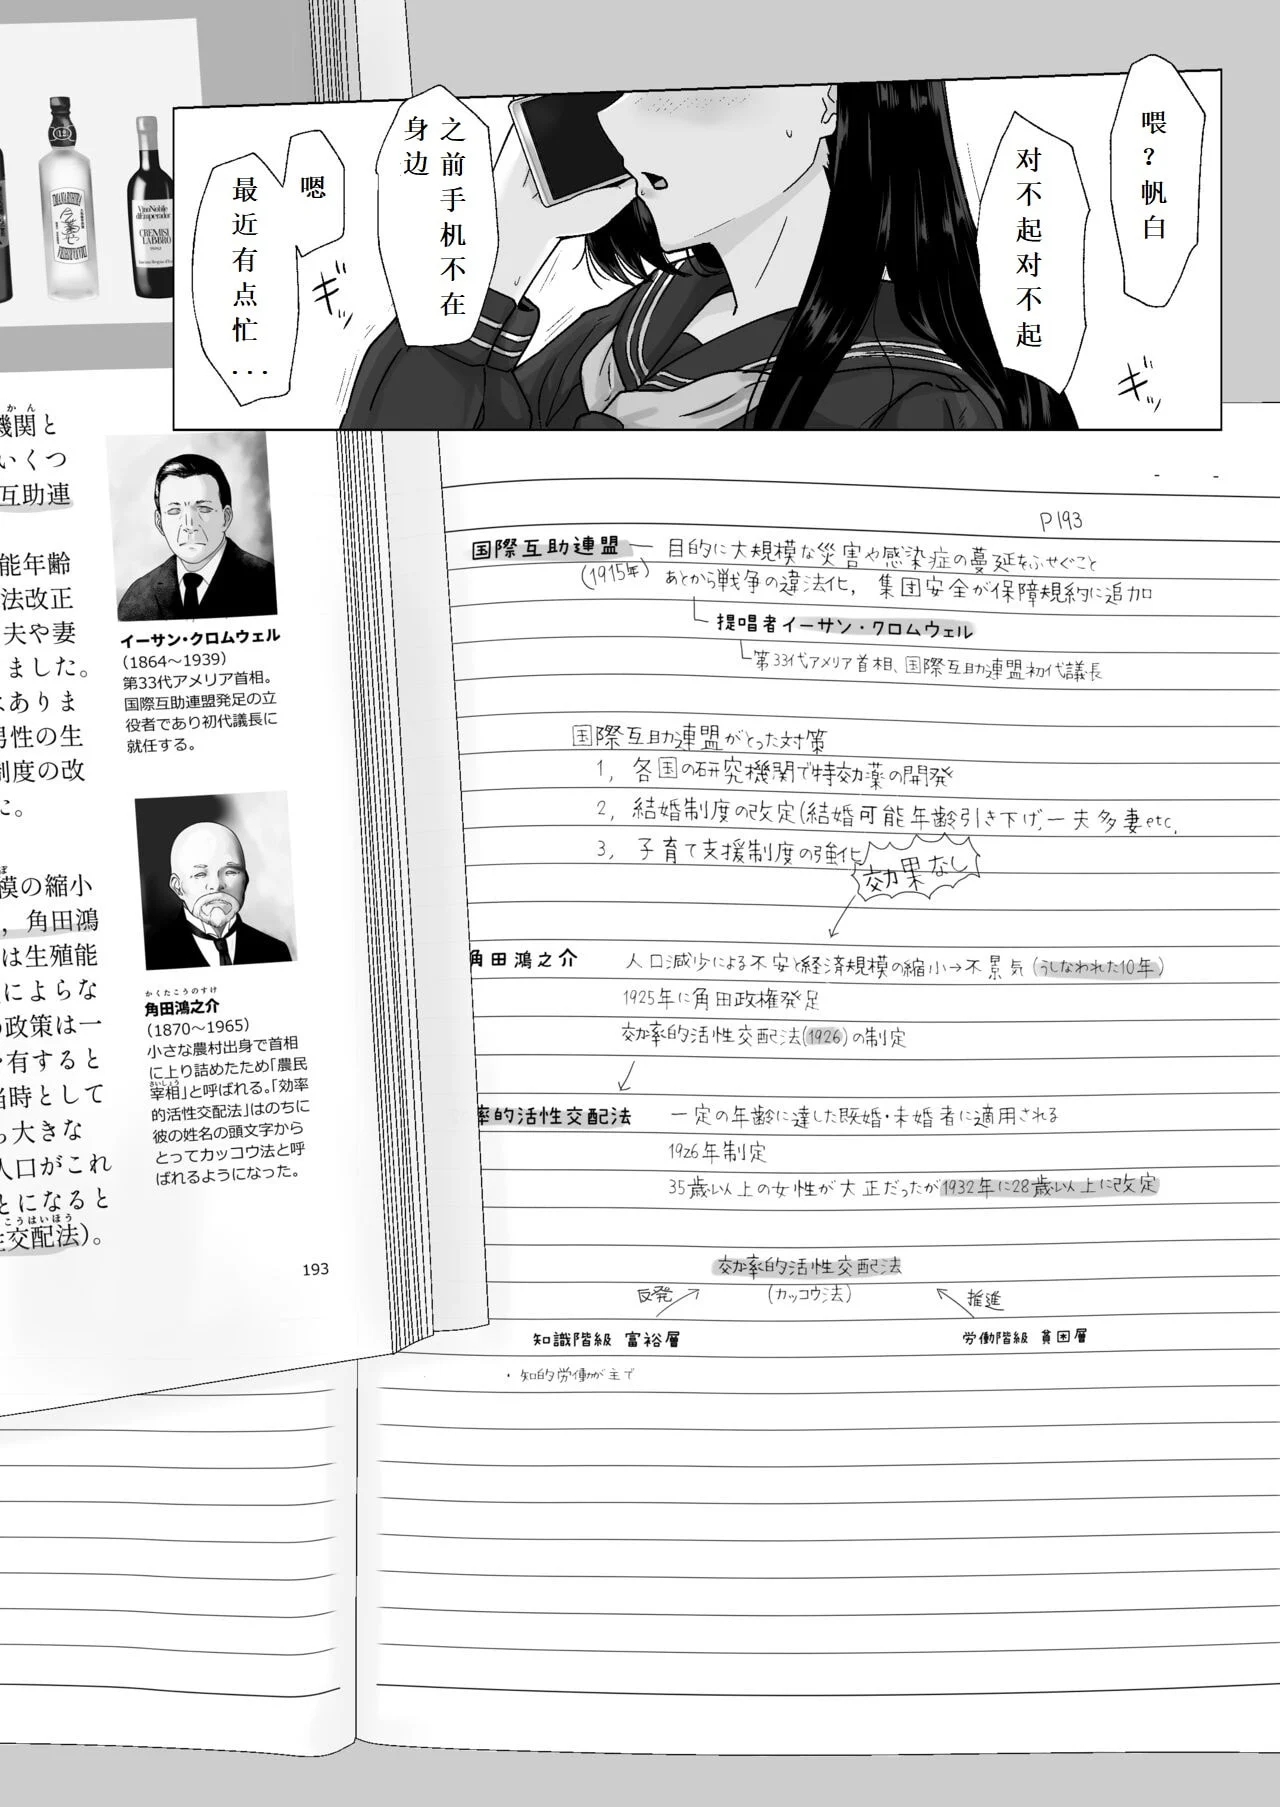 喂？帆白
对不起对不起
之前手机不在
身边
嗯
最近有点忙...
ギシ
ギシ
VinoNobile
d'Emperador
CREMISI
LABBRO
かん
機関と
いくつ
互助連
能年齢
法改正
夫や妻
りました。
はありま
男性の生
制度の改
た。
模の縮小
，角田鴻
は生殖能
によらな
の政策は一
を有すると
当時として
ら大きな
人口がこれ
とになると
こうはいほう
性交配法）。
イーサン・クロムウェル
（1864～1939）
第33代アメリア首相。
国際互助連盟発足の立
役者であり初代議長に
就任する。
かくたこうのすけ
角田鴻之介
（1870～1965）
小さな農村出身で首相
に上り詰めたため「農民
さいしょう
宰相」と呼ばれる。「効率
的活性交配法」はのちに
彼の姓名の頭文字から
とってカッコウ法と呼
ばれるようになった。
193
P193
国際互助連盟 ― 目的に大規模な災害や感染症の蔓延をふせぐこと
(1915年) あとから戦争の違法化，集団安全が保障規約に追加
提唱者イーサン・クロムウェル
第33代アメリア首相、国際互助連盟初代議長
国際互助連盟がとった対策
1, 各国の研究機関で特効薬の開発
2, 結婚制度の改定(結婚可能年齢引き下げ,一夫多妻etc,
3, 子育て支援制度の強化
効果なし
角田鴻之介 人口減少による不安と経済規模の縮小→不景気(うしなわれた10年)
1925年に角田政権発足
効率的活性交配法(1926)の制定
率的活性交配法 一定の年齢に達した既婚・未婚者に適用される
1926年制定
35歳以上の女性が大正だったが1932年に28歳以上に改定
効率的活性交配法
反発 (カッコウ法) 推進
知識階級 富裕層 労働階級 貧困層
・知的労働が主で